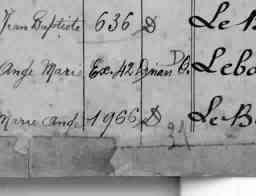 Jean Baptiste 636 D Le B
Ange Marie Ex. 42 Dinan D.C. Lebo
Marie Ange 1966 D Le B